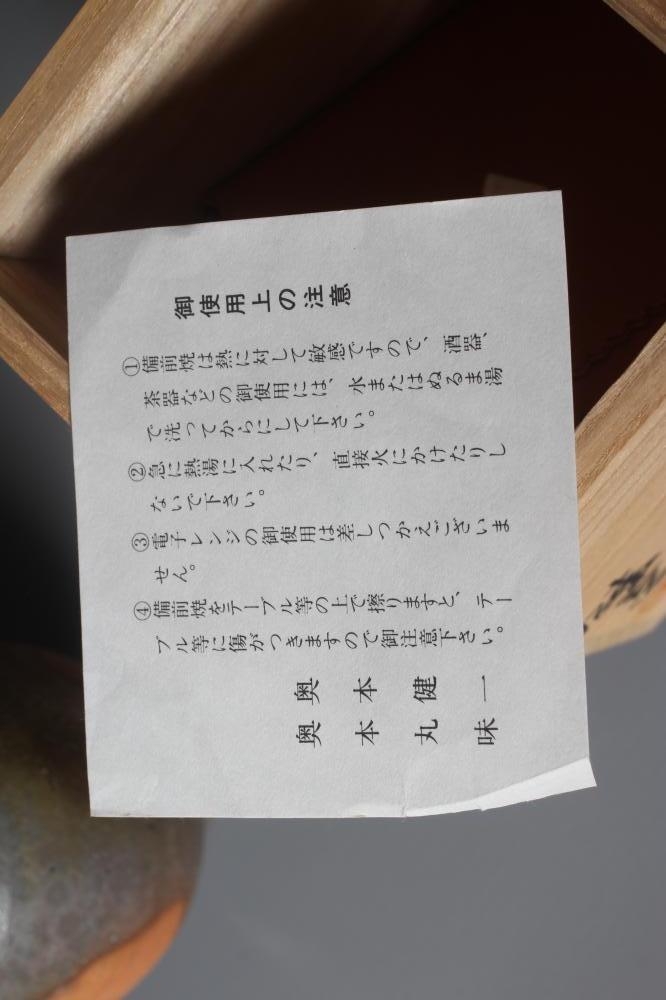 御使用上の注意
①備前焼は熱に対して敏感ですので、酒器、
茶器などの御使用には、水またはぬるま湯
で洗ってからにして下さい。
②急に熱湯に入れたり、直接火にかけたりし
ないで下さい。
③電子レンジの御使用は差しつかえございま
せん。
④備前焼をテーブル等の上で擦りますと、テー
ブル等に傷がつきますので御注意下さい。
奥本健一
奥本丸味